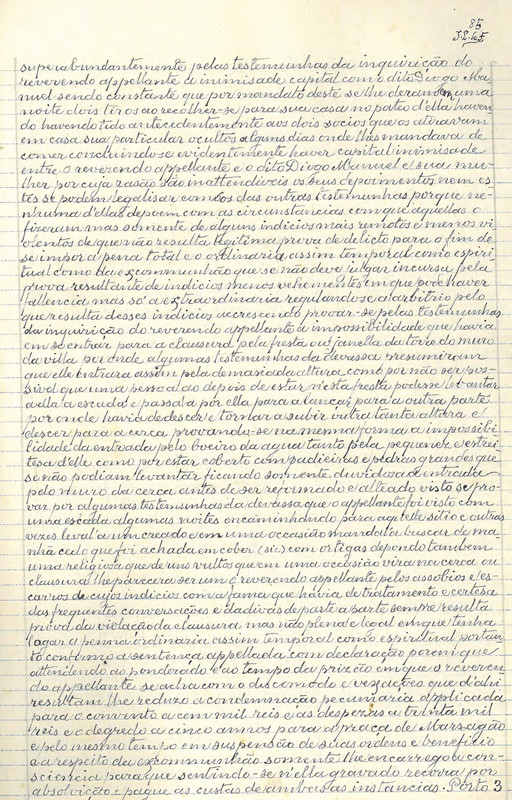 85
superabundantemente pelas testemunhas da inquirição do
reverendo appellante a inimisade capital com o dito Diogo Ma-
nuel sendo constante que por mandato deste se lhe deram em uma
noite dois tiros ao recolher-se para sua casa no pateo d'ella haven
do havendo tido antecedentemente aos dois socios que os atiravam
em casa sua particular ocultos alguns dias onde lhes mandava de
comer concluindo-se evidentemente haver capital inimisade
entre o reverendo appellante e o dito Diogo Manuel e sua mu-
lher por cuja rasão são inattendiveis os seus depoimentos nem es-
tes se podem legalisar com os das outras testemunhas porque ne-
nhuma d'ellas depoem com as circunstancias com que aquellas o
fizeram mas somente de alguns indicios mais remotos e menos vi-
olentos de que não resulta legitima prova de delicto para o fim de
se impor a pena total e o ordinaria assim temporal como espiri-
tual como da excommunhão que se não deve julgar incursu pela
prova resultante de indicios menos vehementes em que pode haver
fallencia mas só a extraordinaria regulando-se a arbitrio pelo
que resulta desses indicios acrescendo provar-se pelas testemunhas
da inquirição do reverendo appellante a impossibilidade que havia
em se entrar para a clausura pela fresta ou janella da torre do muro
da villa por onde algumas testemunhas da devassa presumiram
que elle entrara assim pela demasiada altura como por não ser pos-
sivel que uma pessoa ao depois de estar n'esta fresta podesse levantar
a ella a escada e passal-a por ella para a lançar para a outra parte
por onde havia de descer e tornar a subir outra tanta altura e
descer para a cerca provando-se na mesma forma a impossibi-
lidade da entrada pelo boeiro da agua tanto pela pequenez e estrei-
tesa d'elle como por estar coberto com padieiras e pedras grandes que
se não podiam levantar ficando somente duvidosa a entrada
pelo muro da cerca antes de ser reformado e alteado visto se pro-
var por algumas testemunhas da devassa que o appellante foi visto com
uma escada algumas noites encaminhando para aquelle sitio e outras
vezes leval-a um creado e em uma occasião mandal-a buscar de ma-
nhã cedo que foi achada em cober (sic) com ortigas depondo tambem
uma religiosa que de uns vultos que em uma occasião vira na cerca ou
clausura lhe parecera ser um o reverendo appellante pelos assobios e es-
carros de cujos indicios com a fama que havia de tratamento e certesa
das frequentes conversações e dadivas de parte a parte sempre resulta
prova da violação da clausura mas não plena e legal em que tenha
logar a penna ordinaria assim temporal como espiritual portan-
to confirmo a sentença appellada com declaração porem que
attendendo ao ponderado e ao tempo da prizão em que o reveren-
do appellante se acha com o discomodo e vexações que d'ahi
resultam lhe reduzo a condemnação pecuniaria applicada
para o convento a cem mil reis e as despezas a trinta mil
reis e o degredo a cinco annos para a praça de Marzagão
e pelo mesmo tempo em suspensão de suas ordens e beneficio
e a respeito da excommunhão somente lhe encarrego a con-
sciencia para que sentindo-se n'ella gravado recorra por
absolvição e pague as custas de ambas as instancias. Porto 3